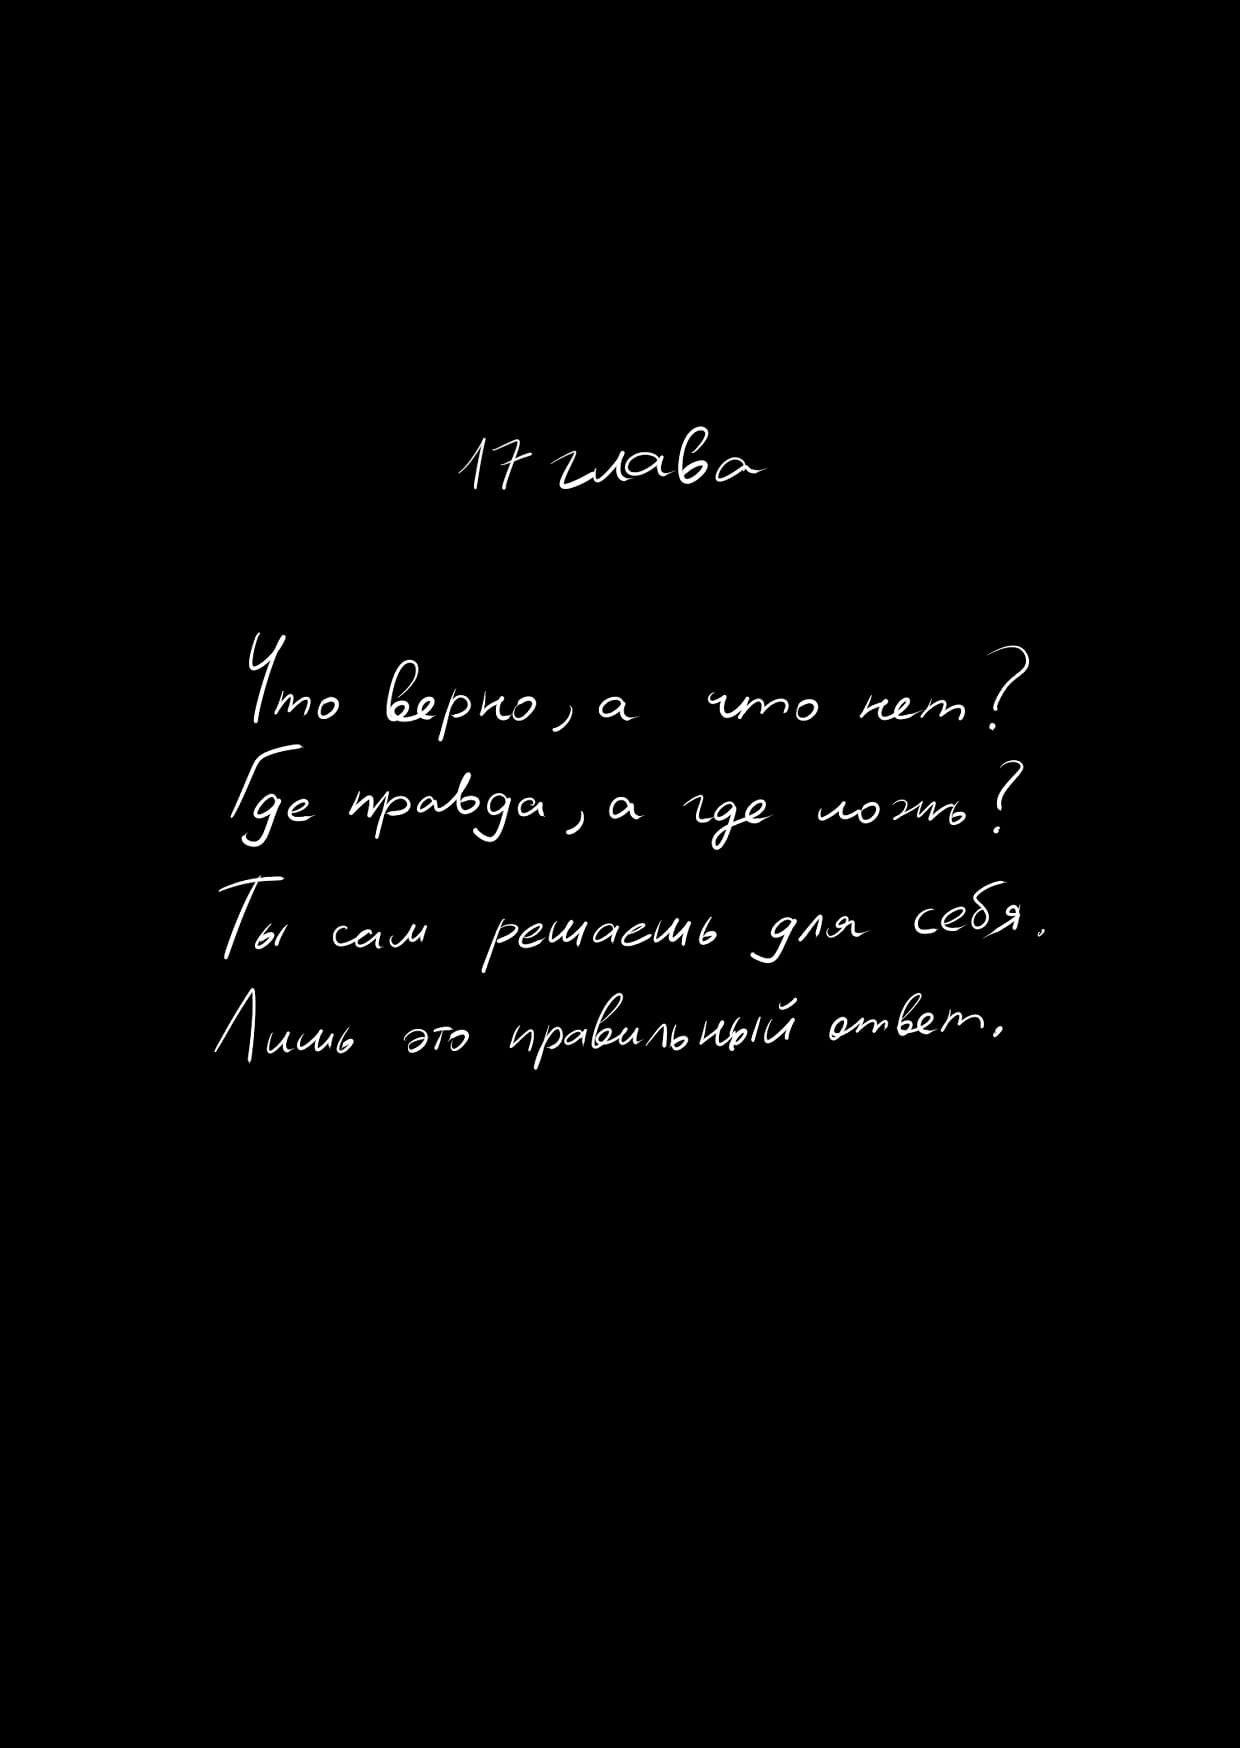 17 глава
Что верно, а что нет?
Где правда, а где ложь?
Ты сам решаешь для себя.
Лишь это правильный ответ.